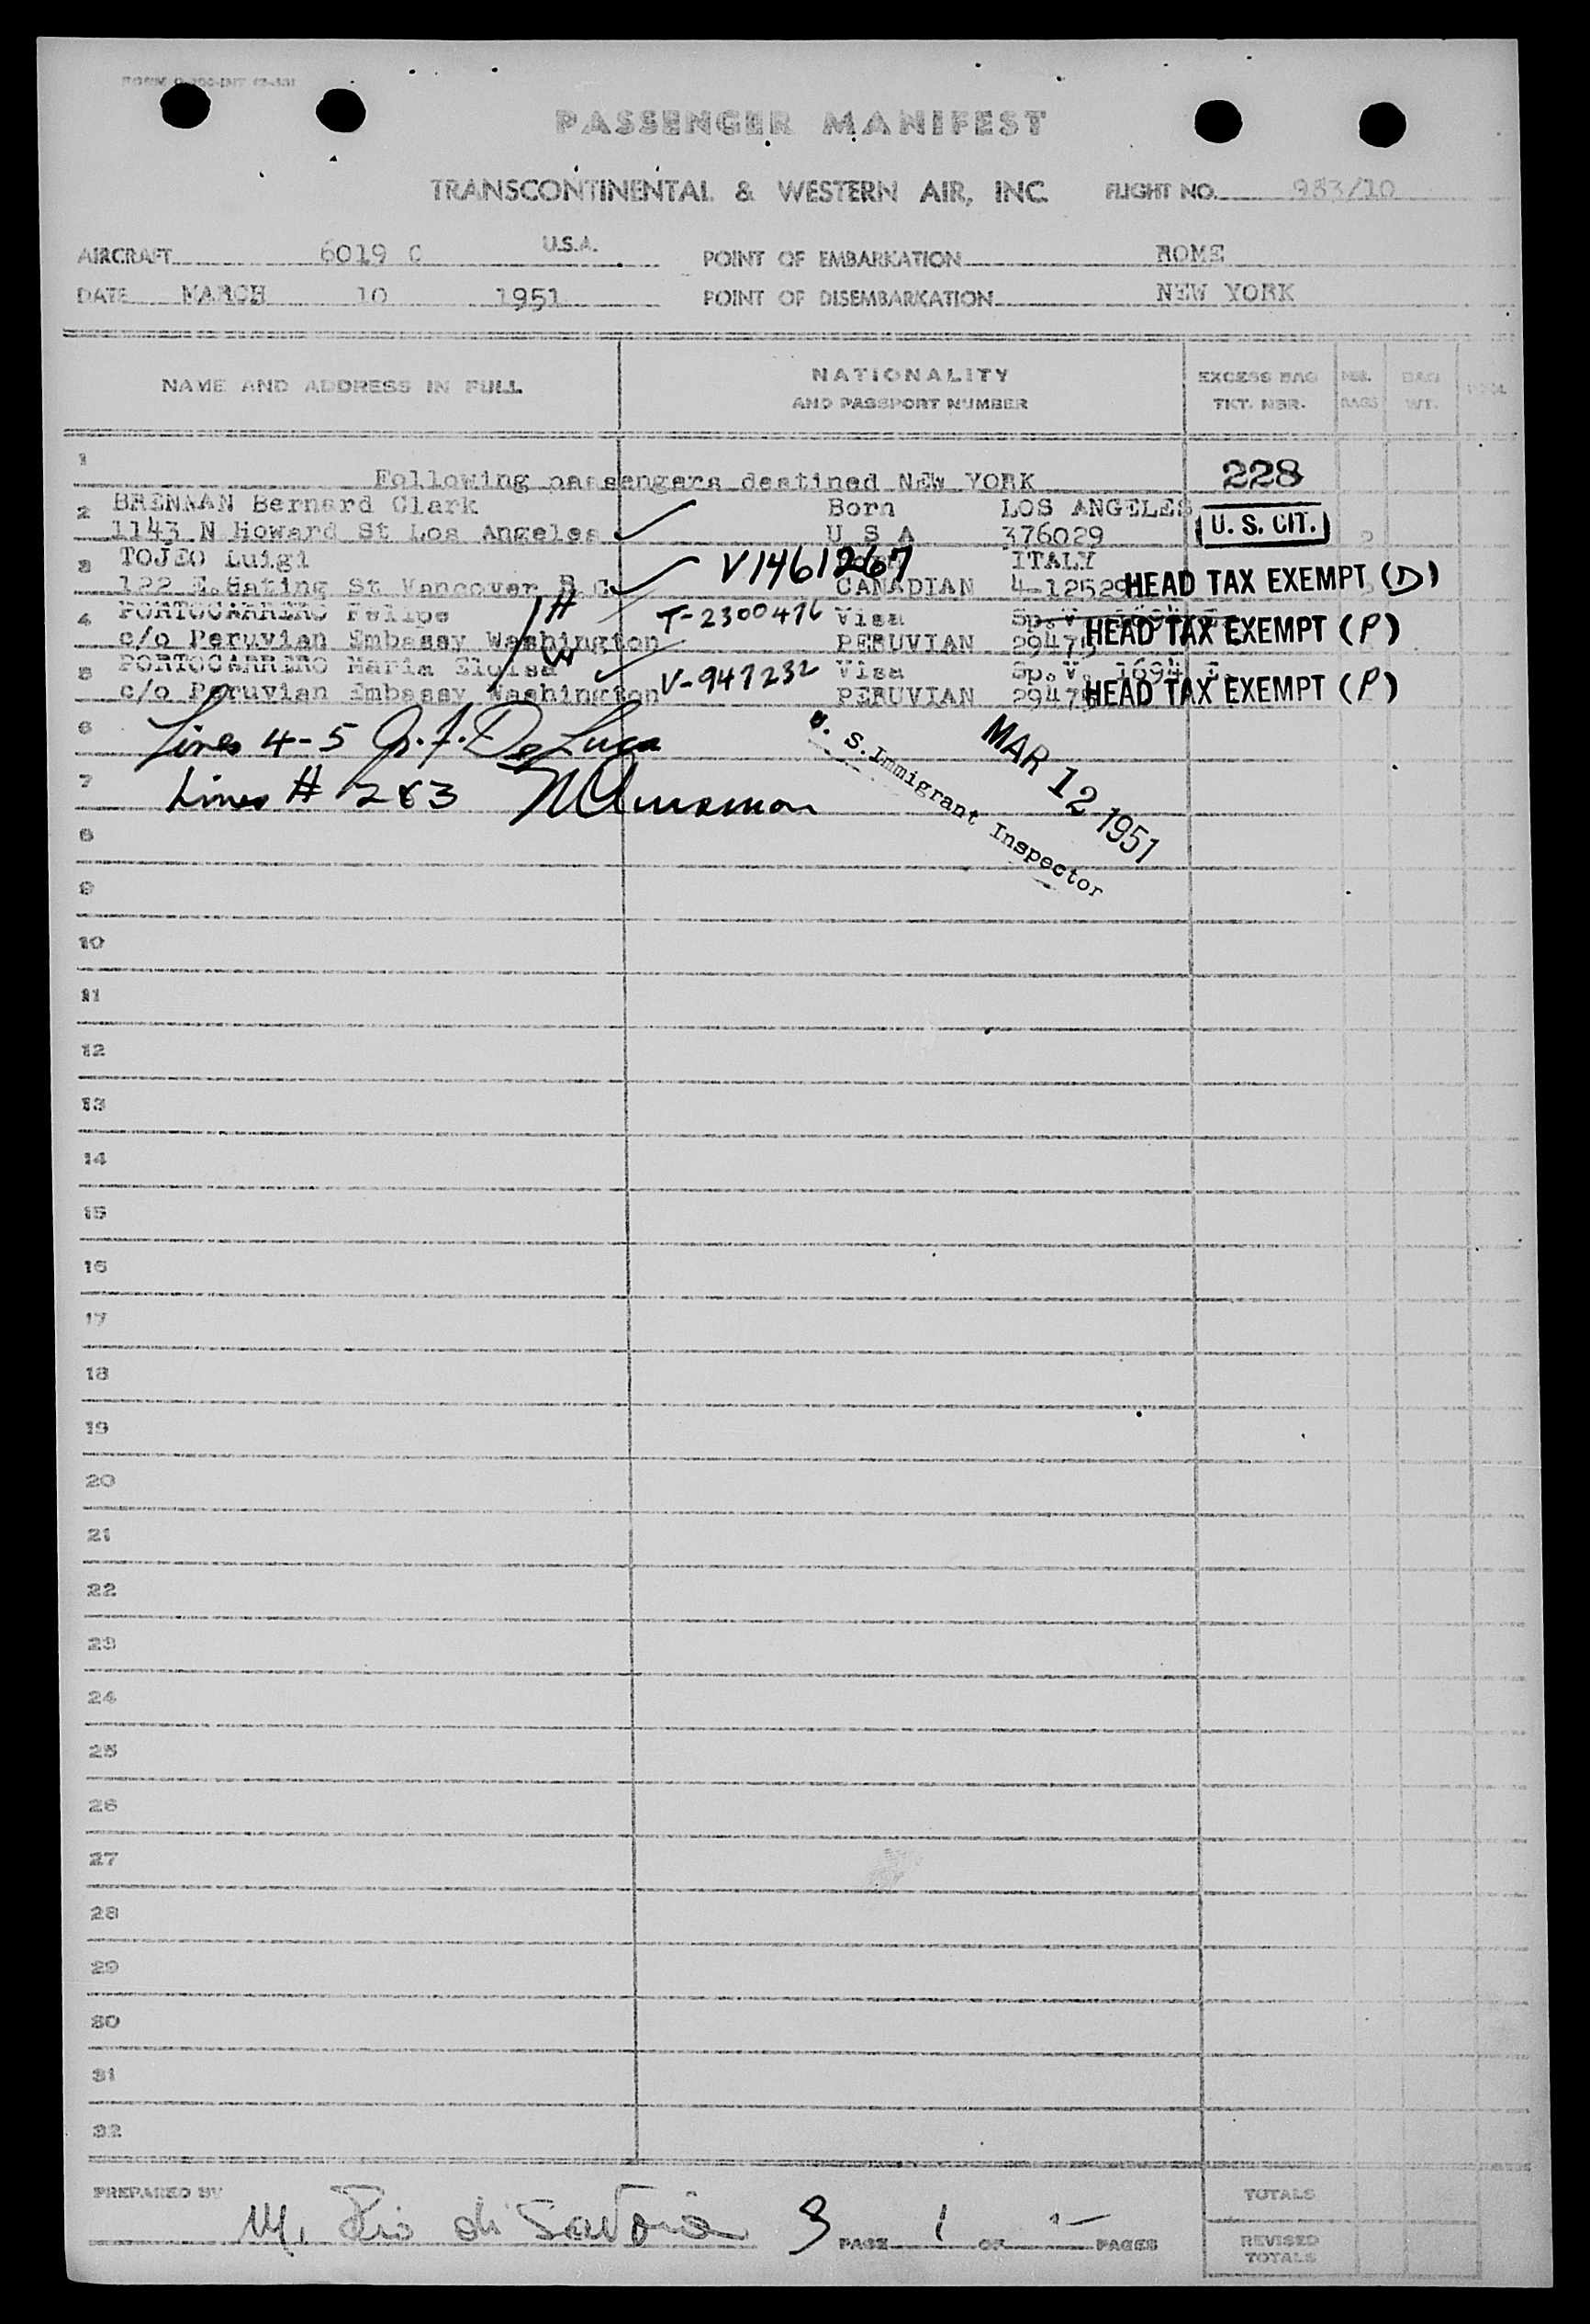 PASSENGER MANIFEST
TRANSCONTINENTAL & WESTERN AIR, INC. FLIGHT NO. 983/10
AIRCRAFT 6019 C U.S.A. POINT OF EMBARKATION ROME
DATE MARCH 10 1951 POINT OF DISEMBARKATION NEW YORK
NAME AND ADDRESS IN FULL NATIONALITY AND PASSPORT NUMBER EXCESS BAG TKT. NBR. NBR. BAGS BAG WT.
1 Following passengers destined NEW YORK 228
2 BRENNAN Bernard Clark Born LOS ANGELES
1143 N Howard St Los Angeles U S A 376029 U. S. CIT.
3 TOJEO Luigi V1461267 ITALY
122 E. Hating St Vancover B C CANADIAN 4-12529 HEAD TAX EXEMPT (D)
4 PORTOCARRERO Felipe H T-2300476 Visa Sp.V.
c/o Peruvian Embassy Washington PERUVIAN 29475 HEAD TAX EXEMPT (P)
5 PORTOCARRERO Maria Eloisa W V-947232 Visa Sp.V. 1694
c/o Peruvian Embassy Washington PERUVIAN 29475 HEAD TAX EXEMPT (P)
6 Lines 4-5 DeLuca
7 Lines # 2 & 3
U. S. Immigrant Inspector
MAR 12 1951
8
9
10
11
12
13
14
15
16
17
18
19
20
21
22
23
24
25
26
27
28
29
30
31
32
PREPARED BY TOTALS
M. Pio di Savoia 3 PAGE 1 OF 1 PAGES REVISED TOTALS